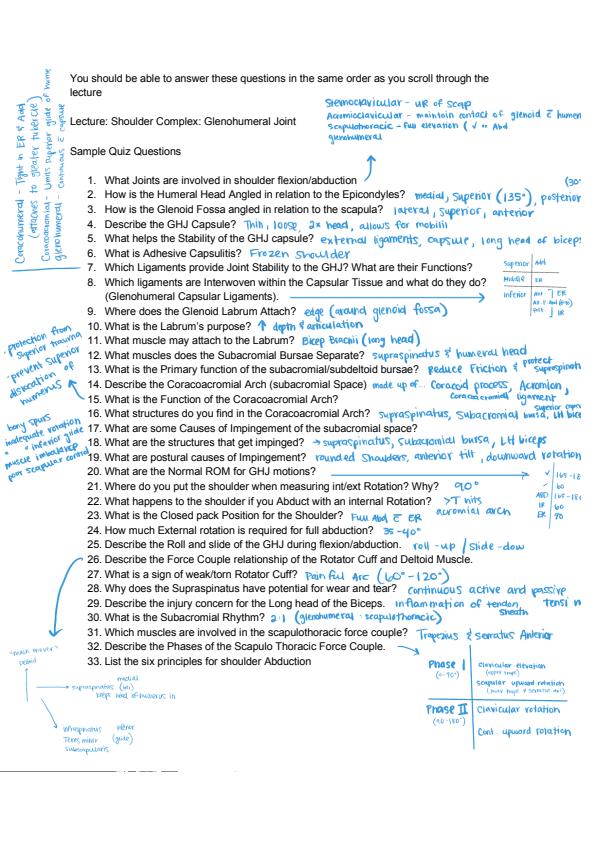 You should be able to answer these questions in the same order as you scroll through the
lecture
Sternoclavicular - UR of scap
Acromioclavicular - maintain contact of glenoid c̄ humer
Scapulothoracic - full elevation (✓ Abd
glenohumeral
Lecture: Shoulder Complex: Glenohumeral Joint
Sample Quiz Questions
Coracohumeral - Tight in ER & Add
(attaches to greater tubercle)
Coracoacromial - Limits superior glide of hume
glenohumeral - continuous c̄ capsule
1. What Joints are involved in shoulder flexion/abduction
(30°
2. How is the Humeral Head Angled in relation to the Epicondyles? medial, superior (135°), posterior
3. How is the Glenoid Fossa angled in relation to the scapula? lateral, superior, anterior
4. Describe the GHJ Capsule? Thin, loose, 2x head, allows for mobiliti
5. What helps the Stability of the GHJ capsule? external ligaments, capsule, long head of biceps
6. What is Adhesive Capsulitis? Frozen shoulder
7. Which Ligaments provide Joint Stability to the GHJ? What are their Functions?
8. Which ligaments are Interwoven within the Capsular Tissue and what do they do?
(Glenohumeral Capsular Ligaments).
Superior Add
Middle ER
Inferior Ant ER
Post IR
9. Where does the Glenoid Labrum Attach? edge (around glenoid fossa)
10. What is the Labrum's purpose? ↑ depth & articulation
11. What muscle may attach to the Labrum? Bicep Brachii (long head)
12. What muscles does the Subacromial Bursae Separate? supraspinatus & humeral head
13. What is the Primary function of the subacromial/subdeltoid bursae? reduce Friction & protect supraspinatu
14. Describe the Coracoacromial Arch (subacromial Space) made up of... Coracoid process, Acromion,
coracoacromial ligament
15. What is the Function of the Coracoacromial Arch?
· protection from
superior trauma
· prevent superior
dislocation of
humerus
16. What structures do you find in the Coracoacromial Arch? supraspinatus, Subacromial bursa, LH bice
superior capsu
17. What are some Causes of Impingement of the subacromial space?
bony spurs
inadequate rotation
" " inferior glide
muscle imbalance
poor scapular control
18. What are the structures that get impinged? → supraspinatus, subacromial bursa, LH biceps
19. What are postural causes of Impingement? rounded shoulders, anterior tilt, downward rotation
20. What are the Normal ROM for GHJ motions?
✓ 165-18
✓ 60
ABD 165-180
IR 60
ER 90
21. Where do you put the shoulder when measuring int/ext Rotation? Why? 90°
22. What happens to the shoulder if you Abduct with an internal Rotation? >T hits
acromial arch
23. What is the Closed pack Position for the Shoulder? Full Abd c̄ ER
24. How much External rotation is required for full abduction? 35-40°
25. Describe the Roll and slide of the GHJ during flexion/abduction. roll-up / slide-dow
26. Describe the Force Couple relationship of the Rotator Cuff and Deltoid Muscle.
27. What is a sign of weak/torn Rotator Cuff? Painful Arc (60°-120°)
28. Why does the Supraspinatus have potential for wear and tear? continuous active and passive
tensi n
29. Describe the injury concern for the Long head of the Biceps. inflammation of tendon
sheath
30. What is the Subacromial Rhythm? 2:1 (glenohumeral : scapulothoracic)
31. Which muscles are involved in the scapulothoracic force couple? Trapezius & serratus Anterior
32. Describe the Phases of the Scapulo Thoracic Force Couple.
33. List the six principles for shoulder Abduction
Phase I
(0-90°)
Clavicular elevation
(upper traps)
scapular upward rotation
Phase II
(90-180°)
Clavicular rotation
Cont. upward rotation
"main mover"
Deltoid
medial
supraspinatus
keeps head of humerus in
infraspinatus
Teres minor
subscapularis
inferior
(glide)